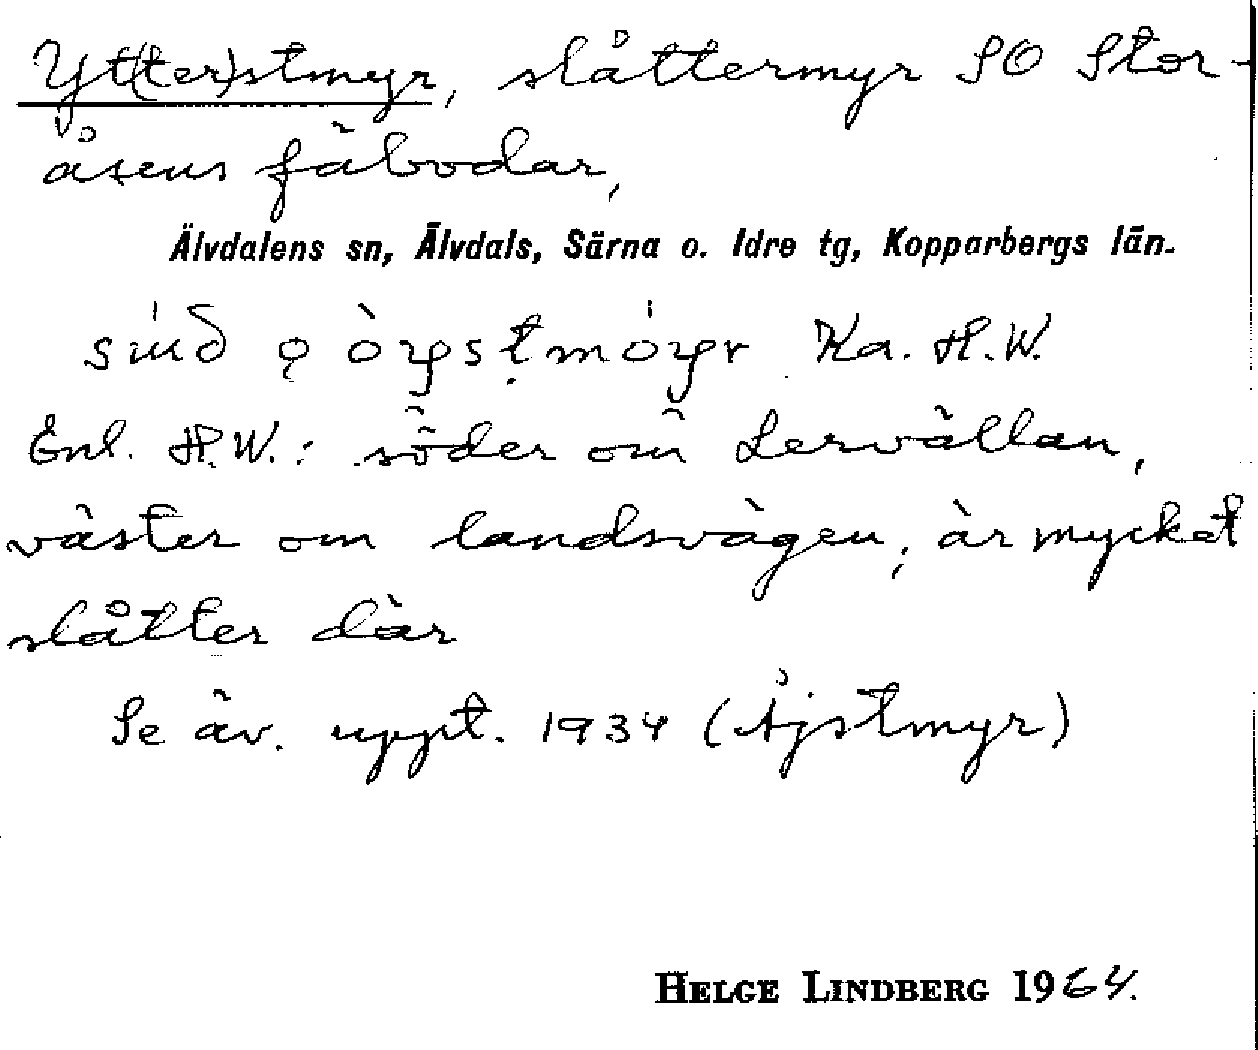 Yt(ter)stmyr, slåttermyr SO Stor-
åsens fäbodar,
Älvdalens sn, Älvdals, Särna o. Idre tg, Kopparbergs län.
Ka. H.W.
Enl. H.W.: söder om Lervällan,
väster om landsvägen, är mycket
slåtter där
Se äv. uppt. 1934 (Åjstmyr)
HELGE LINDBERG 1964.